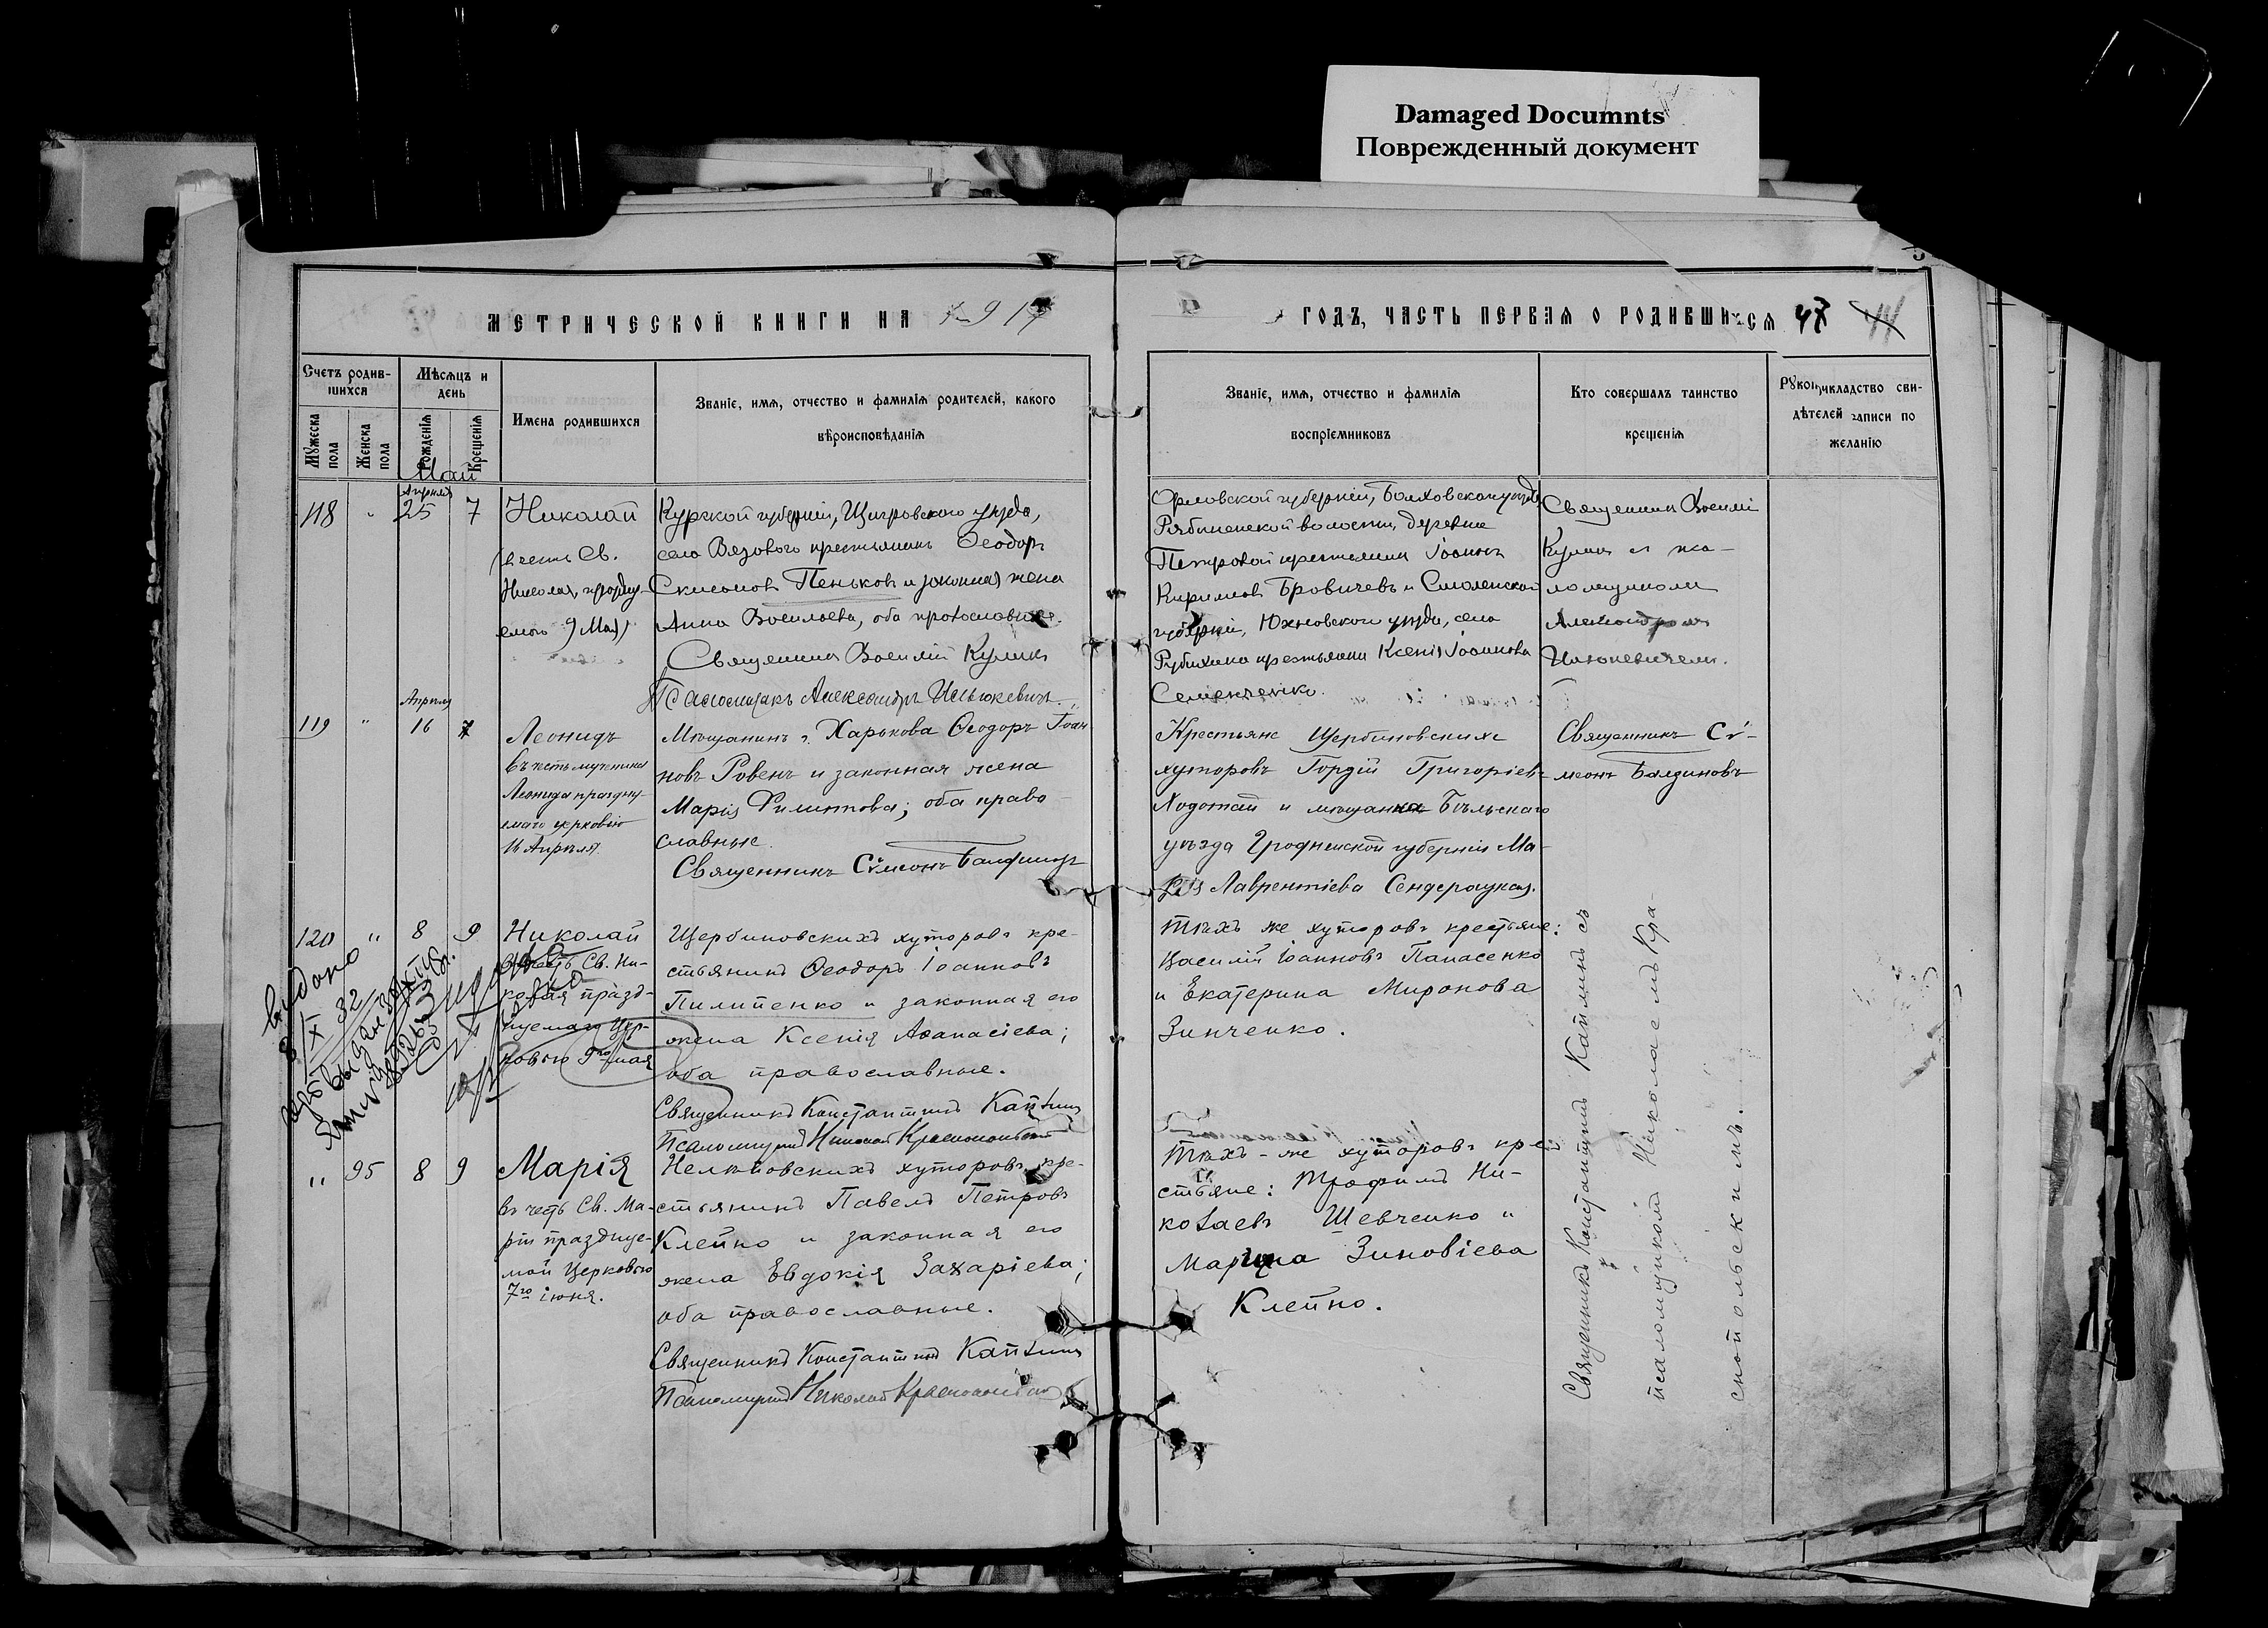 Damaged Documnts
Поврежденный документ
МЕТРИЧЕСКОЙ КНИГИ НА 1917
ГОДЪ, ЧАСТЬ ПЕРВАЯ О РОДИВШИХСЯ 47 44
Счетъ родив-
шихся
Мужеска пола
Женска пола
Мѣсяцъ и
день
Рожденія
Крещенія
Имена родившихся
Званіе, имя, отчество и фамилія родителей, какого
вѣроисповѣданія
Званіе, имя, отчество и фамилія
воспріемниковъ
Кто совершалъ таинство
крещенія
свидѣтелей записи по
желанію
Май
118 " Апрѣля 25 7
Николай
въ честь Св.
Николая, праздну-
емаго 9 Мая)
Курской губерніи, Щигровского уѣзда,
села Вязового крестьянинъ Ѳеодоръ
Пеньковъ и законная жена
Анна Васильева, оба православные.
Священникъ Василій Куликъ
Псаломщикъ Александръ Ильюкевичъ.
Орловской губерніи, Болховского уѣзда,
волости, деревни
Петровой крестьянинъ Іоаннъ
Бровичевъ и Смоленской
губерніи, Юхновского уѣзда, села
крестьянка Ксенія Іоаннова
Семенченко.
Священникъ Василій
Куликъ съ пса-
ломщикомъ
Александромъ
Ильюкевичемъ.
119 " Апрѣля 16 7
Леонидъ
въ честь мученика
Леонида праздну-
емаго церковію
16 Апрѣля.
Мѣщанинъ г. Харькова Ѳеодоръ Іоан-
новъ Ровенъ и законная жена
Марія Филиппова; оба право-
славные.
Священникъ Сѵмеонъ Балдиновъ
Крестьяне Щербиновскихъ
хуторовъ Гордій Григоріевъ
Ходотай и мѣщанка Бѣльскаго
уѣзда Гродненской губерніи Ма-
рія Лаврентіева Сендерацкая.
Священникъ Сѵ-
меонъ Балдиновъ
120 " 8 9
Николай
въ честь Св. Ни-
колая празд-
нуемаго Цер-
ковью 9го мая
Щербиновскихъ хуторовъ кре-
стьянинъ Ѳеодоръ Іоанновъ
Пилипенко и законная его
жена Ксенія Аѳанасіева;
оба православные.
Священникъ Константинъ Каплинъ
Псаломщикъ Николай Краснопольскій
Тѣхъ же хуторовъ крестьяне:
Василій Іоанновъ Панасенко
и Екатерина Миронова
Зинченко.
Видано
" 95 8 9
Марія
въ честь Св. Ма-
ріи празднуе-
мой Церковью
7го іюня.
Нелѣповскихъ хуторовъ кре-
стьянинъ Павелъ Петровъ
Клепко и законная его
жена Евдокія Захаріева;
оба православные.
Священникъ Константинъ Каплинъ
Псаломщикъ Николай Краснопольскій
Тѣхъ-же хуторовъ кре-
стьяне: Трофимъ Ни-
колаевъ Шевченко и
Марина Зиновіева
Клепко.
Священникъ Константинъ Каплинъ съ
псаломщикомъ Николаемъ Кра-
снопольскимъ.